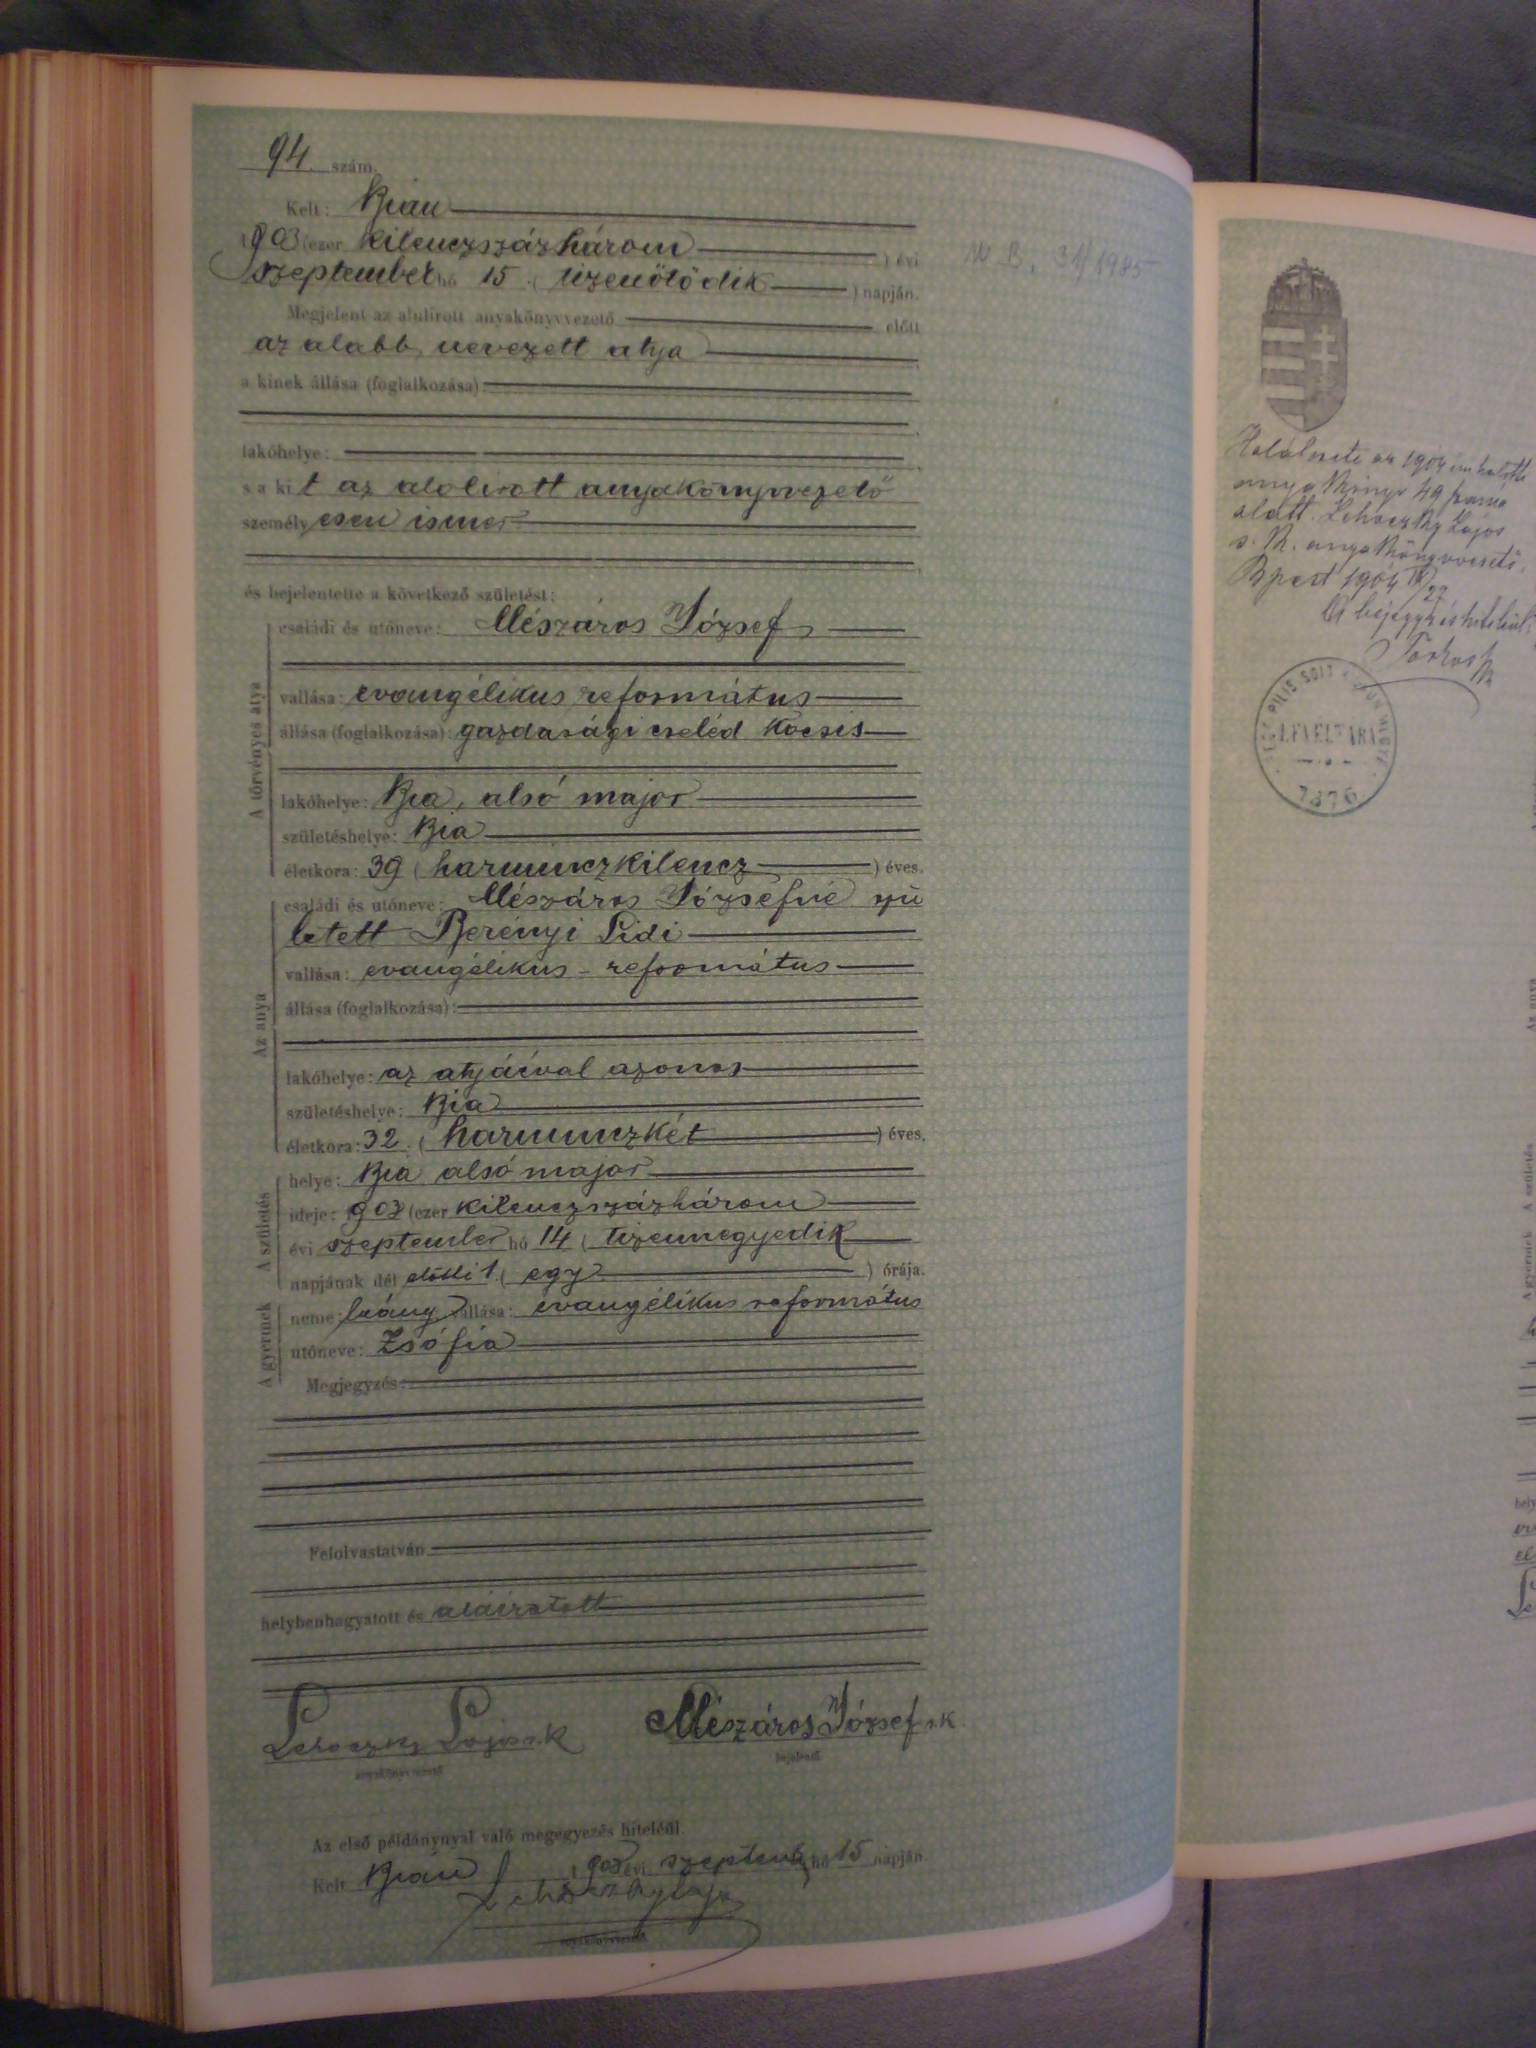 94. szám.
Kelt: Bián
1903 (ezer kilenczszázhárom ) évi
szeptember hó 15 ( tizenötödik ) napján.
Megjelent az alulírott anyakönyvvezető előtt
az alabb nevezett atya
a kinek állása (foglalkozása):
lakóhelye:
s a kit az alolirott anyakönyvvezető
személyesen ismer
és bejelentette a következő születést:
A törvényes atya
családi és utóneve: Mészáros József
vallása: evangélikus református
állása (foglalkozása): gazdasági cseléd kocsis
lakóhelye: Bia, alsó major
születéshelye: Bia
életkora: 39 ( harminczkilencz ) éves.
Az anya
családi és utóneve: Mészáros Józsefné szü
letett Berényi Lidi
vallása: evangélikus - református
állása (foglalkozása):
lakóhelye: az atyáéval azonos
születéshelye: Bia
életkora: 32. ( harminczkét ) éves.
A születés
helye: Bia alsó major
ideje: 1903 (ezer kilenczszázhárom
évi szeptember hó 14 ( tizennegyedik
napjának dél előtti 1 ( egy ) órája.
A gyermek
neme: leány vallása: evangélikus református
utóneve: Zsófia
Megjegyzés:
Felolvastatván
helybenhagyatott és aláíratott
Lehoczky Lajos s.k.
anyakönyvvezető
Mészáros József s.k.
bejelentő
Az első példánynyal való megegyezés hiteléül.
Kelt Bián 1903 évi szeptemb hó 15 napján.
Lehoczky Lajos
anyakönyvvezető
31/1985
Halálesete az 1904 évi halotti
anyakönyv 49 száma
alatt. Lehoczky Lajos
s. k. anyakönyvvezető.
Bpest 1904 IX/27
A bejegyzés hiteléül:
LEVÉLTÁRA
1876